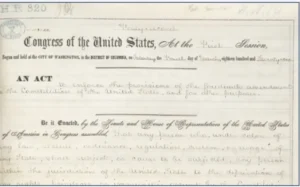 H.R. 320
Forty-second
Congress of the United States, At the First Session,
Begun and held at the CITY OF WASHINGTON, in the DISTRICT OF COLUMBIA, on Saturday the Fourth day of March, eighteen hundred and seventy-one
AN ACT
To enforce the provisions of the fourteenth amendment
to the Constitution of the United States, and for other purposes.
Be it Enacted, by the Senate and House of Representatives of the United States
of America in Congress assembled, That any person who, under color of
any law, statute, ordinance, regulation, custom, or usage of
any State, shall subject, or cause to be subjected, any person
within the jurisdiction of the United States to the deprivation of